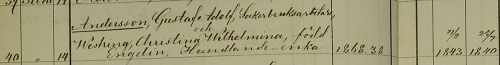 Andersson, Gustaf Adolf, Sockerbruksarbetare,
och
Westring, Christina Wilhelmina, född
40 " 14 Engelin, Handlande-enka 1868. 38 1843 1840